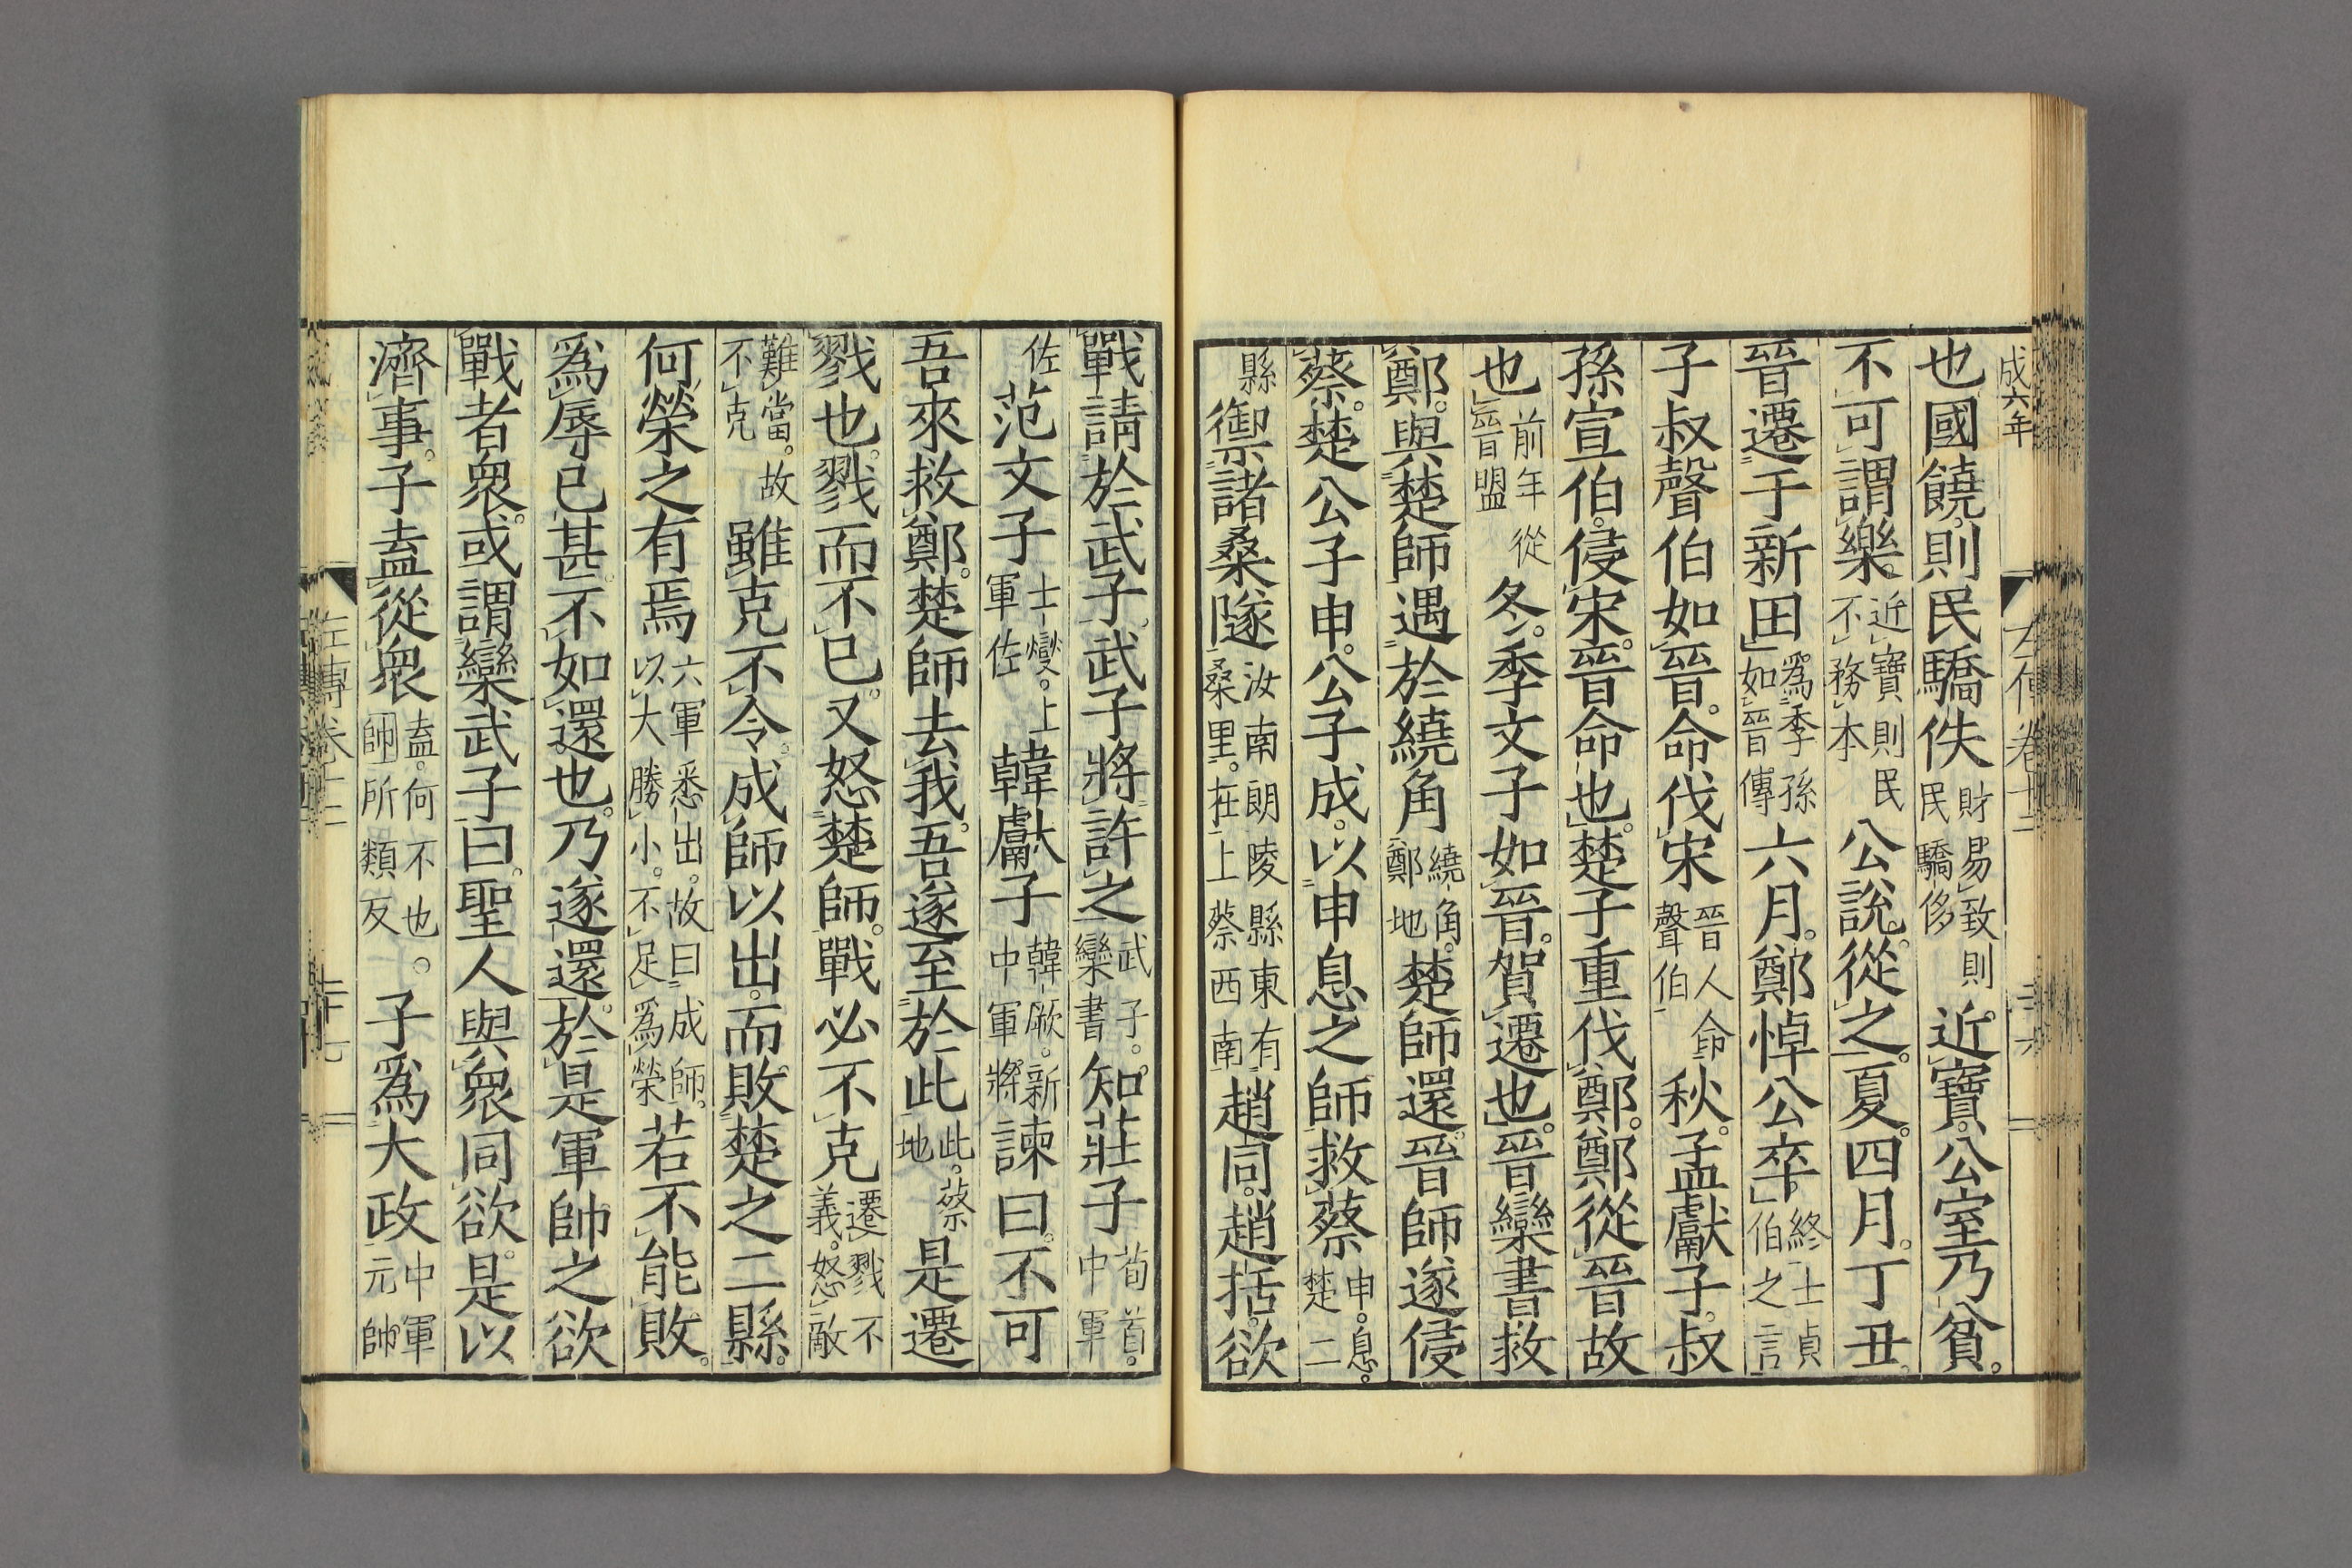 成六年
也國饒。則民驕佚財易致則民驕侈近寶。公室乃貧。
不可謂樂。近寶則民不務本公說。從之。夏。四月。丁丑。
晉遷于新田爲季孫如晉傳六月。鄭悼公卒。終士貞伯之言
子叔聲伯如晉。命伐宋晉人命聲伯秋。孟獻子。叔
孫宣伯。侵宋。晉命也。楚子重伐鄭。鄭從晉故
也前年從晉盟冬。季文子如晉。賀遷也。晉欒書救
鄭。與楚師遇於繞角繞角。鄭地楚師還。晉師遂侵
蔡。楚公子申。公子成。以申息之師救蔡申。息。楚二
縣御諸桑隧汝南朗陵縣東有桑里。在上蔡西南趙同。趙括。欲
戰請於武子。武子將許之武子。欒書知莊子荀首。中軍
佐范文子士燮。上軍佐韓獻子韓厥。新中軍將諫曰。不可
吾來救鄭。楚師去我。吾遂至於此此。蔡地是遷
戮也。戮而不已。又怒楚師。戰必不克遷戮不義。怒敵
難當。故不克雖克不令。成師以出。而敗楚之二縣。
何榮之有焉六軍悉出。故曰成師。以大勝小。不足爲榮若不能敗。
爲辱已甚。不如還也。乃遂還。於是軍帥之欲
戰者衆。或謂欒武子曰。聖人與衆同欲。是以
濟事。子盍從衆盍。何不也。帥所類反。子爲大政中軍元帥
左傳卷十二